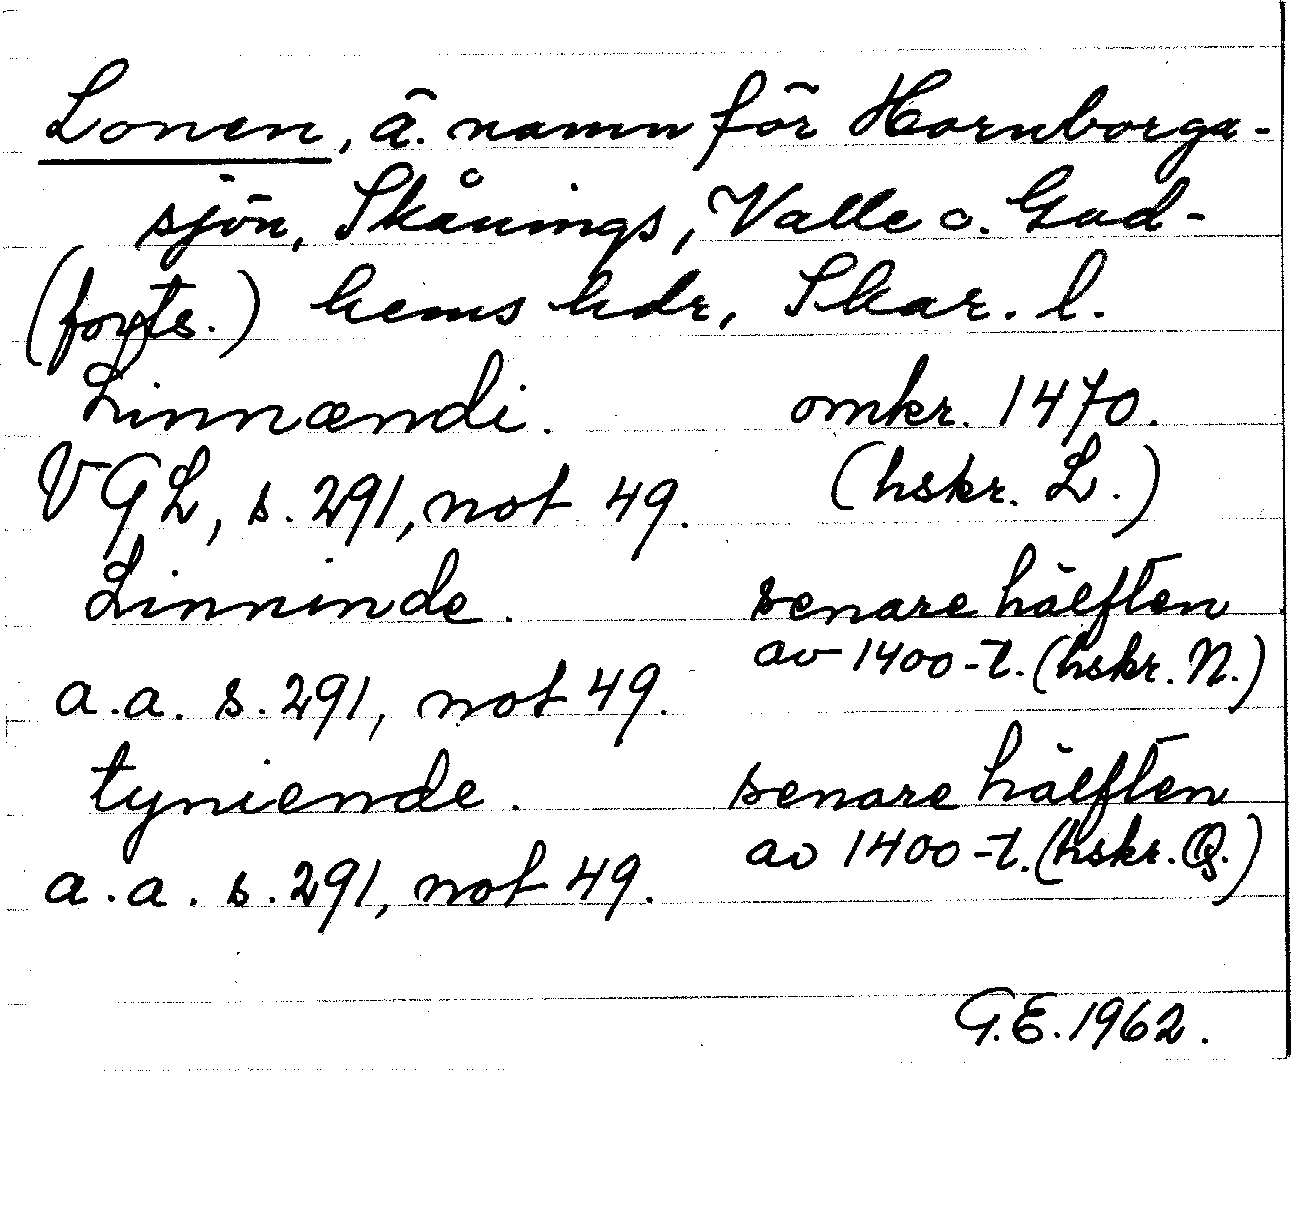 Lonen, ä. namn för Hornborga-
sjön, Skånings, Valle o. Gud-
(forts.) hems hdr, Skar. l.
Linnændi. omkr. 1470.
VGL, s. 291, not 49. (hskr. L.)
Linninde. senare hälften
av 1400-t. (hskr. N.)
a.a. s. 291, not 49.
tyniende. senare hälften
av 1400-t. (hskr. Q.)
a.a. s. 291, not 49.
G.E. 1962.